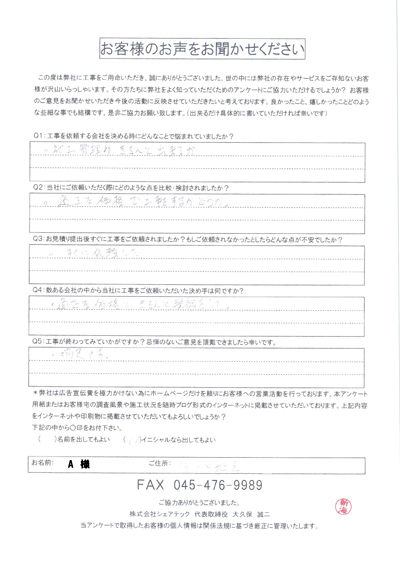 お客様のお声をお聞かせください
この度は弊社に工事をご用命いただき、誠にありがとうございました。世の中には弊社の存在やサービスをご存知ないお客
様が沢山いらっしゃいます。その方たちに弊社をよく知っていただくためのアンケートにご協力いただけるでしょうか? お客
様のご意見をお聞かせいただき今後の活動に反映させていただきたいと考えております。良かったこと、嬉しかったことどのよう
な些細な事でも結構です。是非ご協力お願い致します。(出来るだけ具体的に書いていただければ幸いです)
Q1:工事を依頼する会社を決める時にどんなことで悩まれていましたか?
Q2:当社にご依頼いただく際にどのような点を比較・検討されましたか?
Q3:お見積り提出後すぐに工事をご依頼されましたか?もしご依頼されなかったとしたらどんな点が不安でしたか?
Q4:数ある会社の中から当社に工事をご依頼いただいた決め手は何ですか?
Q5:工事が終わってみていかがですか?忌憚のないご意見を頂戴できましたら幸いです。
*弊社は広告宣伝費を極力かけない為にホームページだけを頼りにお客様への営業活動を行っております。本アンケート
用紙またはお客様宅の調査風景や施工状況を随時ブログ形式のインターネットに掲載させていただいております。上記内容
をインターネットや印刷物に掲載させていただいてもよろしいでしょうか?
下記の中から〇印をお付下さい。
( )名前を出してもよい ( )イニシャルなら出してもよい
お名前: A 様 ご住所:
FAX 045-476-9989
ご協力ありがとうございました。
株式会社シェアテック 代表取締役 大久保 誠二
当アンケートで取得したお客様の個人情報は関係法規に基づき厳正に管理いたします。